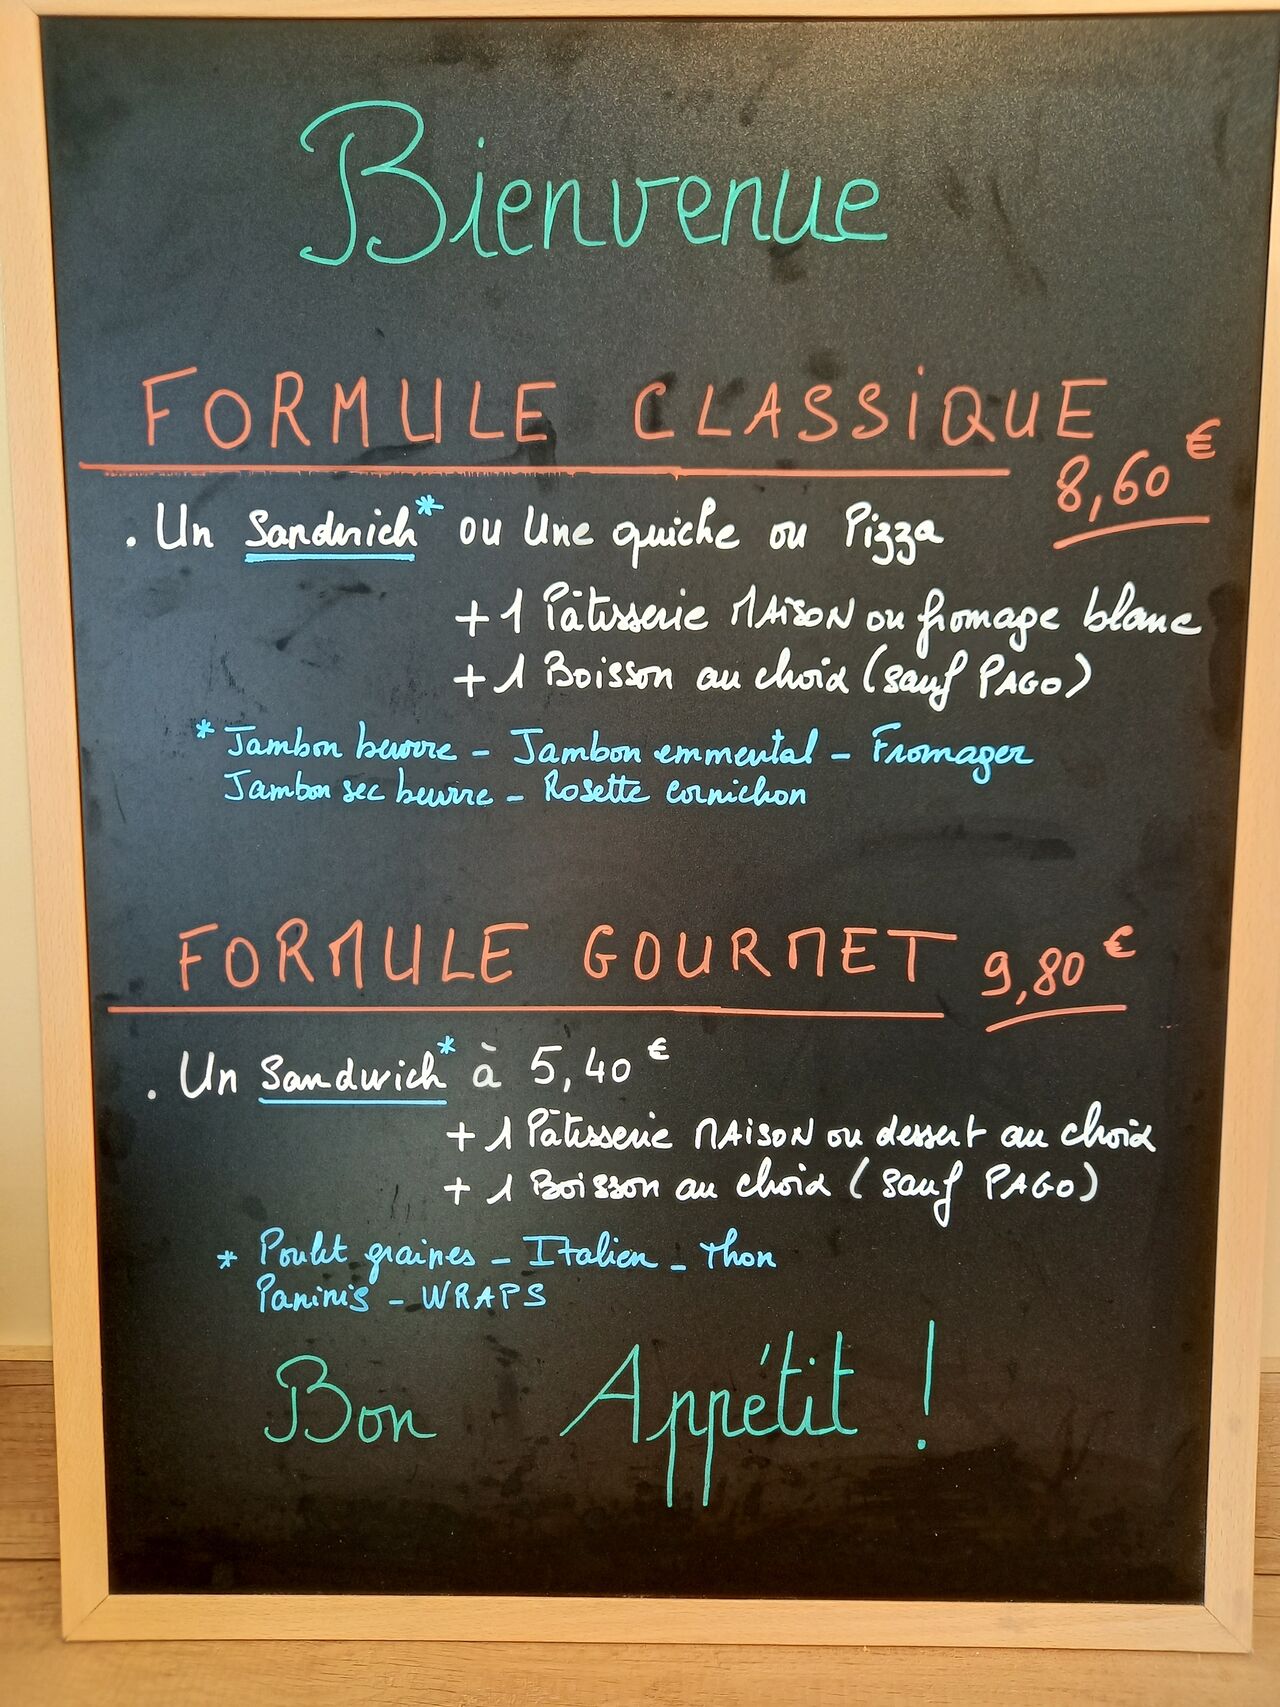 Bienvenue
FORMULE CLASSIQUE
8,60 €
. Un Sandwich* ou Une quiche ou Pizza
+ 1 Pâtisserie MAISON ou fromage blanc
+ 1 Boisson au choix (sauf PAGO)
* Jambon beurre - Jambon emmental - Fromager
Jambon sec beurre - Rosette cornichon
FORMULE GOURMET 9,80 €
. Un Sandwich* à 5,40 €
+ 1 Pâtisserie MAISON ou dessert au choix
+ 1 Boisson au choix (sauf PAGO)
* Poulet graines - Italien - Thon
Paninis - WRAPS
Bon Appétit !